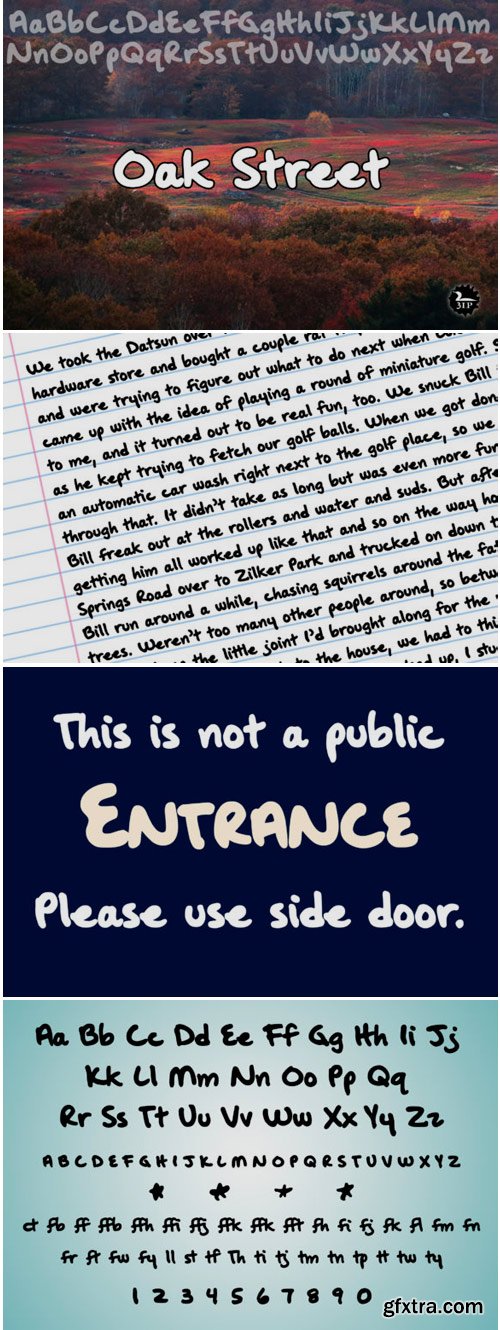 AaBbCcDdEeFfGgHhIiJjKkLlMm
NnOoPpQqRrSsTtUuVvWwXxYyZz
Oak Street
3IP
We took the Datsun over
hardware store and bought a couple
and were trying to figure out what to do next when
came up with the idea of playing a round of miniature golf.
to me, and it turned out to be real fun, too. We snuck Bill
as he kept trying to fetch our golf balls. When we got don
an automatic car wash right next to the golf place, so we
through that. It didn't take as long but was even more fun
Bill freak out at the rollers and water and suds. But afte
getting him all worked up like that and so on the way ho
Springs Road over to Zilker Park and trucked on down t
Bill run around a while, chasing squirrels around the fa
trees. Weren't too many other people around, so betw
the little joint I'd brought along for the
to the house, we had to thi
up, I stu
This is not a public
ENTRANCE
Please use side door.
Aa Bb Cc Dd Ee Ff Gg Hh Ii Jj
Kk Ll Mm Nn Oo Pp Qq
Rr Ss Tt Uu Vv Ww Xx Yy Zz
A B C D E F G H I J K L M N O P Q R S T U V W X Y Z
* * * *
ct fb ff ffb ffh ffi ffj ffk fft fh fi fj fk fl fm fn
fr ft fw fy ll st tf Th ti tj tm tn tp tt tw ty
1 2 3 4 5 6 7 8 9 0
gfxtra.com